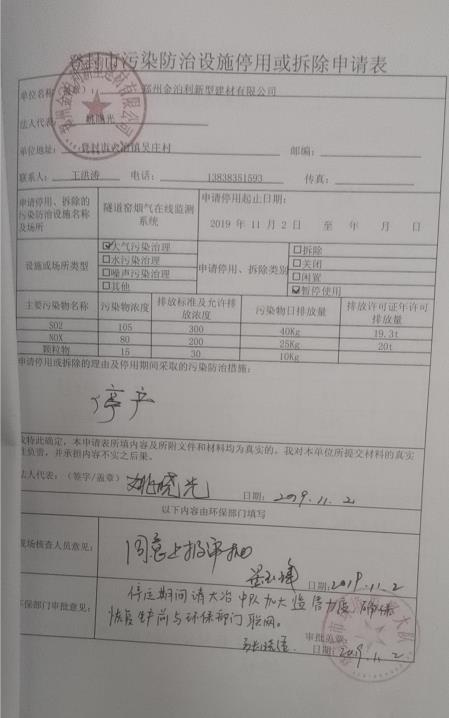 登封市污染防治设施停用或拆除申请表
单位名称(章): 郑州金泊利新型建材有限公司
法人代表: 姚晓光
单位地址: 登封市大冶镇吴庄村 邮编:
联系人: 王洪涛 电话: 13838351593 传真:
申请停用、拆除的污染防治设施名称及场所 隧道窑烟气在线监测系统 申请停用起止日期: 2019 年 11 月 2 日 至 年 月 日
设施或场所类型 ☑大气污染治理 □水污染治理 □噪声污染治理 □其他 申请停用、拆除类别 □拆除 □关闭 □闲置 ☑暂停使用
主要污染物名称 污染物浓度 排放标准及允许排放浓度 污染物日排放量 排放许可证年许可排放量
SO2 105 300 40Kg 19.3t
NOX 80 200 25Kg 20t
颗粒物 15 30 10Kg
申请停用或拆除的理由及停用期间采取的污染防治措施:
停产
我特此确定,本申请表所填内容及所附文件和材料均为真实的。我对本单位所提交材料的真实
性负责,并承担内容不实之后果。
法人代表:(签字/盖章) 姚晓光 日期: 2019.11.2
以下内容由环保部门填写
现场核查人员意见: 同意上报审批
日期: 2019.11.2
环保部门审批意见: 停运期间请大冶中队加大监管力度 确保
恢复生产前与环保部门联网。
审批盖章:
日期: 2019.11.2